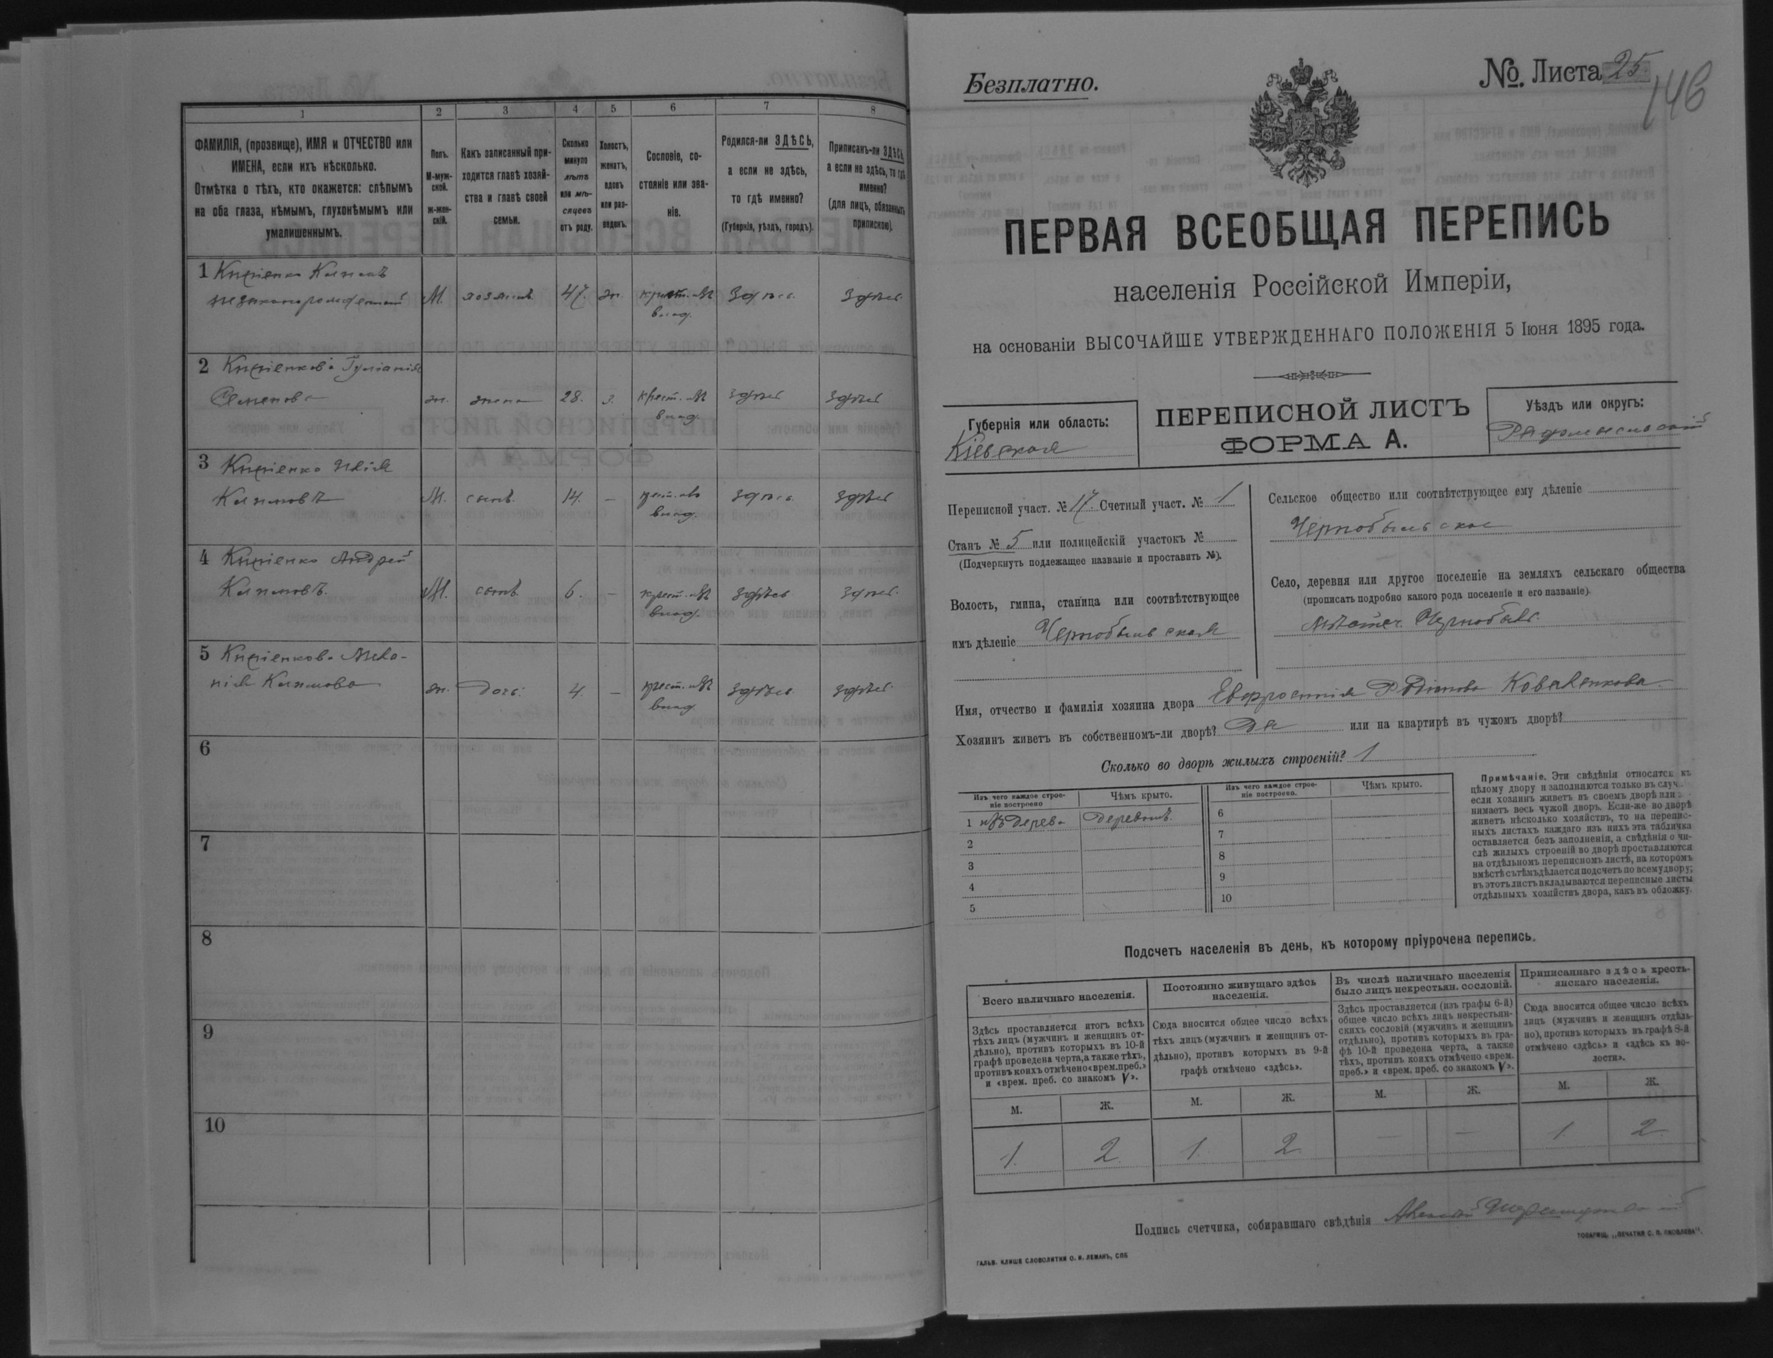 1
2
3
4
5
6
7
8
ФАМИЛІЯ, (прозвище), ИМЯ и ОТЧЕСТВО или
ИМЕНА, если ихъ нѣсколько.
Отмѣтка о тѣхъ, кто окажется: слѣпымъ
на оба глаза, нѣмымъ, глухонѣмымъ или
умалишеннымъ.
Полъ.
М-муж-
ской.
ж-жен-
скій.
Какъ записанный при-
ходится главѣ хозяй-
ства и главѣ своей
семьи.
Сколько
минуло
лѣтъ
или мѣ-
сяцевъ
отъ роду.
Холостъ,
женатъ,
вдовъ
или раз-
веденъ.
Сословіе, со-
стояніе или зва-
ніе.
Родился-ли ЗДѢСЬ,
а если не здѣсь,
то гдѣ именно?
(Губернія, уѣздъ, городъ).
Приписанъ-ли ЗДѢСЬ,
а если не здѣсь, то гдѣ
именно?
(для лицъ, обязанныхъ
припискою).
1
незаконорожденный М. хозяинъ 47. жн. здѣсь здѣсь
2
Семенова жн. жена 28. з. здѣсь здѣсь
3
Климовъ М. сынъ 14. — здѣсь здѣсь
4 Андрей
Климовъ. М. сынъ 6. — здѣсь здѣсь
5
Климова жн. дочь 4 — здѣсь здѣсь
6
7
8
9
10
Безплатно.
№. Листа 25
146
ПЕРВАЯ ВСЕОБЩАЯ ПЕРЕПИСЬ
населенія Россійской Имперіи,
на основаніи ВЫСОЧАЙШЕ УТВЕРЖДЕННАГО ПОЛОЖЕНІЯ 5 Іюня 1895 года.
Губернія или область:
Кіевская
ПЕРЕПИСНОЙ ЛИСТЪ
ФОРМА А.
Уѣздъ или округъ:
Радомысльскій
Переписной участ. № 17. Счетный участ. № 1
Станъ № 5 или полицейскій участокъ №
(Подчеркнуть подлежащее названіе и проставить №).
Волость, гмина, станица или соотвѣтствующее
имъ дѣленіе Чернобыльская
Сельское общество или соотвѣтствующее ему дѣленіе
Чернобыльское
Село, деревня или другое поселеніе на земляхъ сельскаго общества
(прописать подробно какого рода поселеніе и его названіе).
Мѣстеч. Чернобыль.
Имя, отчество и фамилія хозяина двора Коваленкова
Хозяинъ живетъ въ собственномъ-ли дворѣ? Да или на квартирѣ въ чужомъ дворѣ?
Сколько во дворѣ жилыхъ строеній? 1
Изъ чего каждое строе-
ніе построено
Чѣмъ крыто.
Изъ чего каждое строе-
ніе построено.
Чѣмъ крыто.
1 изъ дерева деревомъ 6
2 7
3 8
4 9
5 10
Примѣчаніе. Эти свѣдѣнія относятся къ
цѣлому двору и заполняются только въ случ.
если хозяинъ живетъ въ своемъ дворѣ или
нимаетъ весь чужой дворъ. Если-же во дворѣ
живетъ нѣсколько хозяйствъ, то на перепис-
ныхъ листахъ каждаго изъ нихъ эта табличка
оставляется безъ заполненія, а свѣдѣнія о чи-
слѣ жилыхъ строеній во дворѣ проставляются
на отдѣльномъ переписномъ листѣ, на которомъ
вмѣстѣ съ тѣмъ дѣлается подсчетъ по всему двору;
въ этотъ листъ вкладываются переписные листы
отдѣльныхъ хозяйствъ двора, какъ въ обложку.
Подсчетъ населенія въ день, къ которому пріурочена перепись.
Всего наличнаго населенія.
Здѣсь проставляется итогъ всѣхъ
тѣхъ лицъ (мужчинъ и женщинъ от-
дѣльно), противъ которыхъ въ 10-й
графѣ проведена черта, а также тѣхъ,
противъ коихъ отмѣчено «врем. преб.»
и «врем. преб. со знакомъ V».
Постоянно живущаго здѣсь
населенія.
Сюда вносится общее число всѣхъ
тѣхъ лицъ (мужчинъ и женщинъ от-
дѣльно), противъ которыхъ въ 9-й
графѣ отмѣчено «здѣсь».
Въ числѣ наличнаго населенія
было лицъ некрестьян. сословій.
Здѣсь проставляется (изъ графы 6-й)
общее число всѣхъ лицъ некрестьян-
скихъ сословій (мужчинъ и женщинъ
отдѣльно), противъ которыхъ въ гра-
фѣ 10-й проведена черта, а также
тѣхъ, противъ коихъ отмѣчено «врем.
преб.» и «врем. преб. со знакомъ V».
Приписаннаго здѣсь кресть-
янскаго населенія.
Сюда вносится общее число всѣхъ
лицъ (мужчинъ и женщинъ отдѣль-
но), противъ которыхъ въ графѣ 8-й
отмѣчено «здѣсь» и «здѣсь въ во-
лости».
М. Ж. М. Ж. М. Ж. М. Ж.
1. 2. 1. 2. — — 1. 2.
Подпись счетчика, собиравшаго свѣдѣнія
ГАЛЬВ. КЛИШЕ СЛОВОЛИТНИ О. И. ЛЕМАНЪ, СПБ
ТОВАРИЩ. „ПЕЧАТНЯ С. П. ЯКОВЛЕВА".